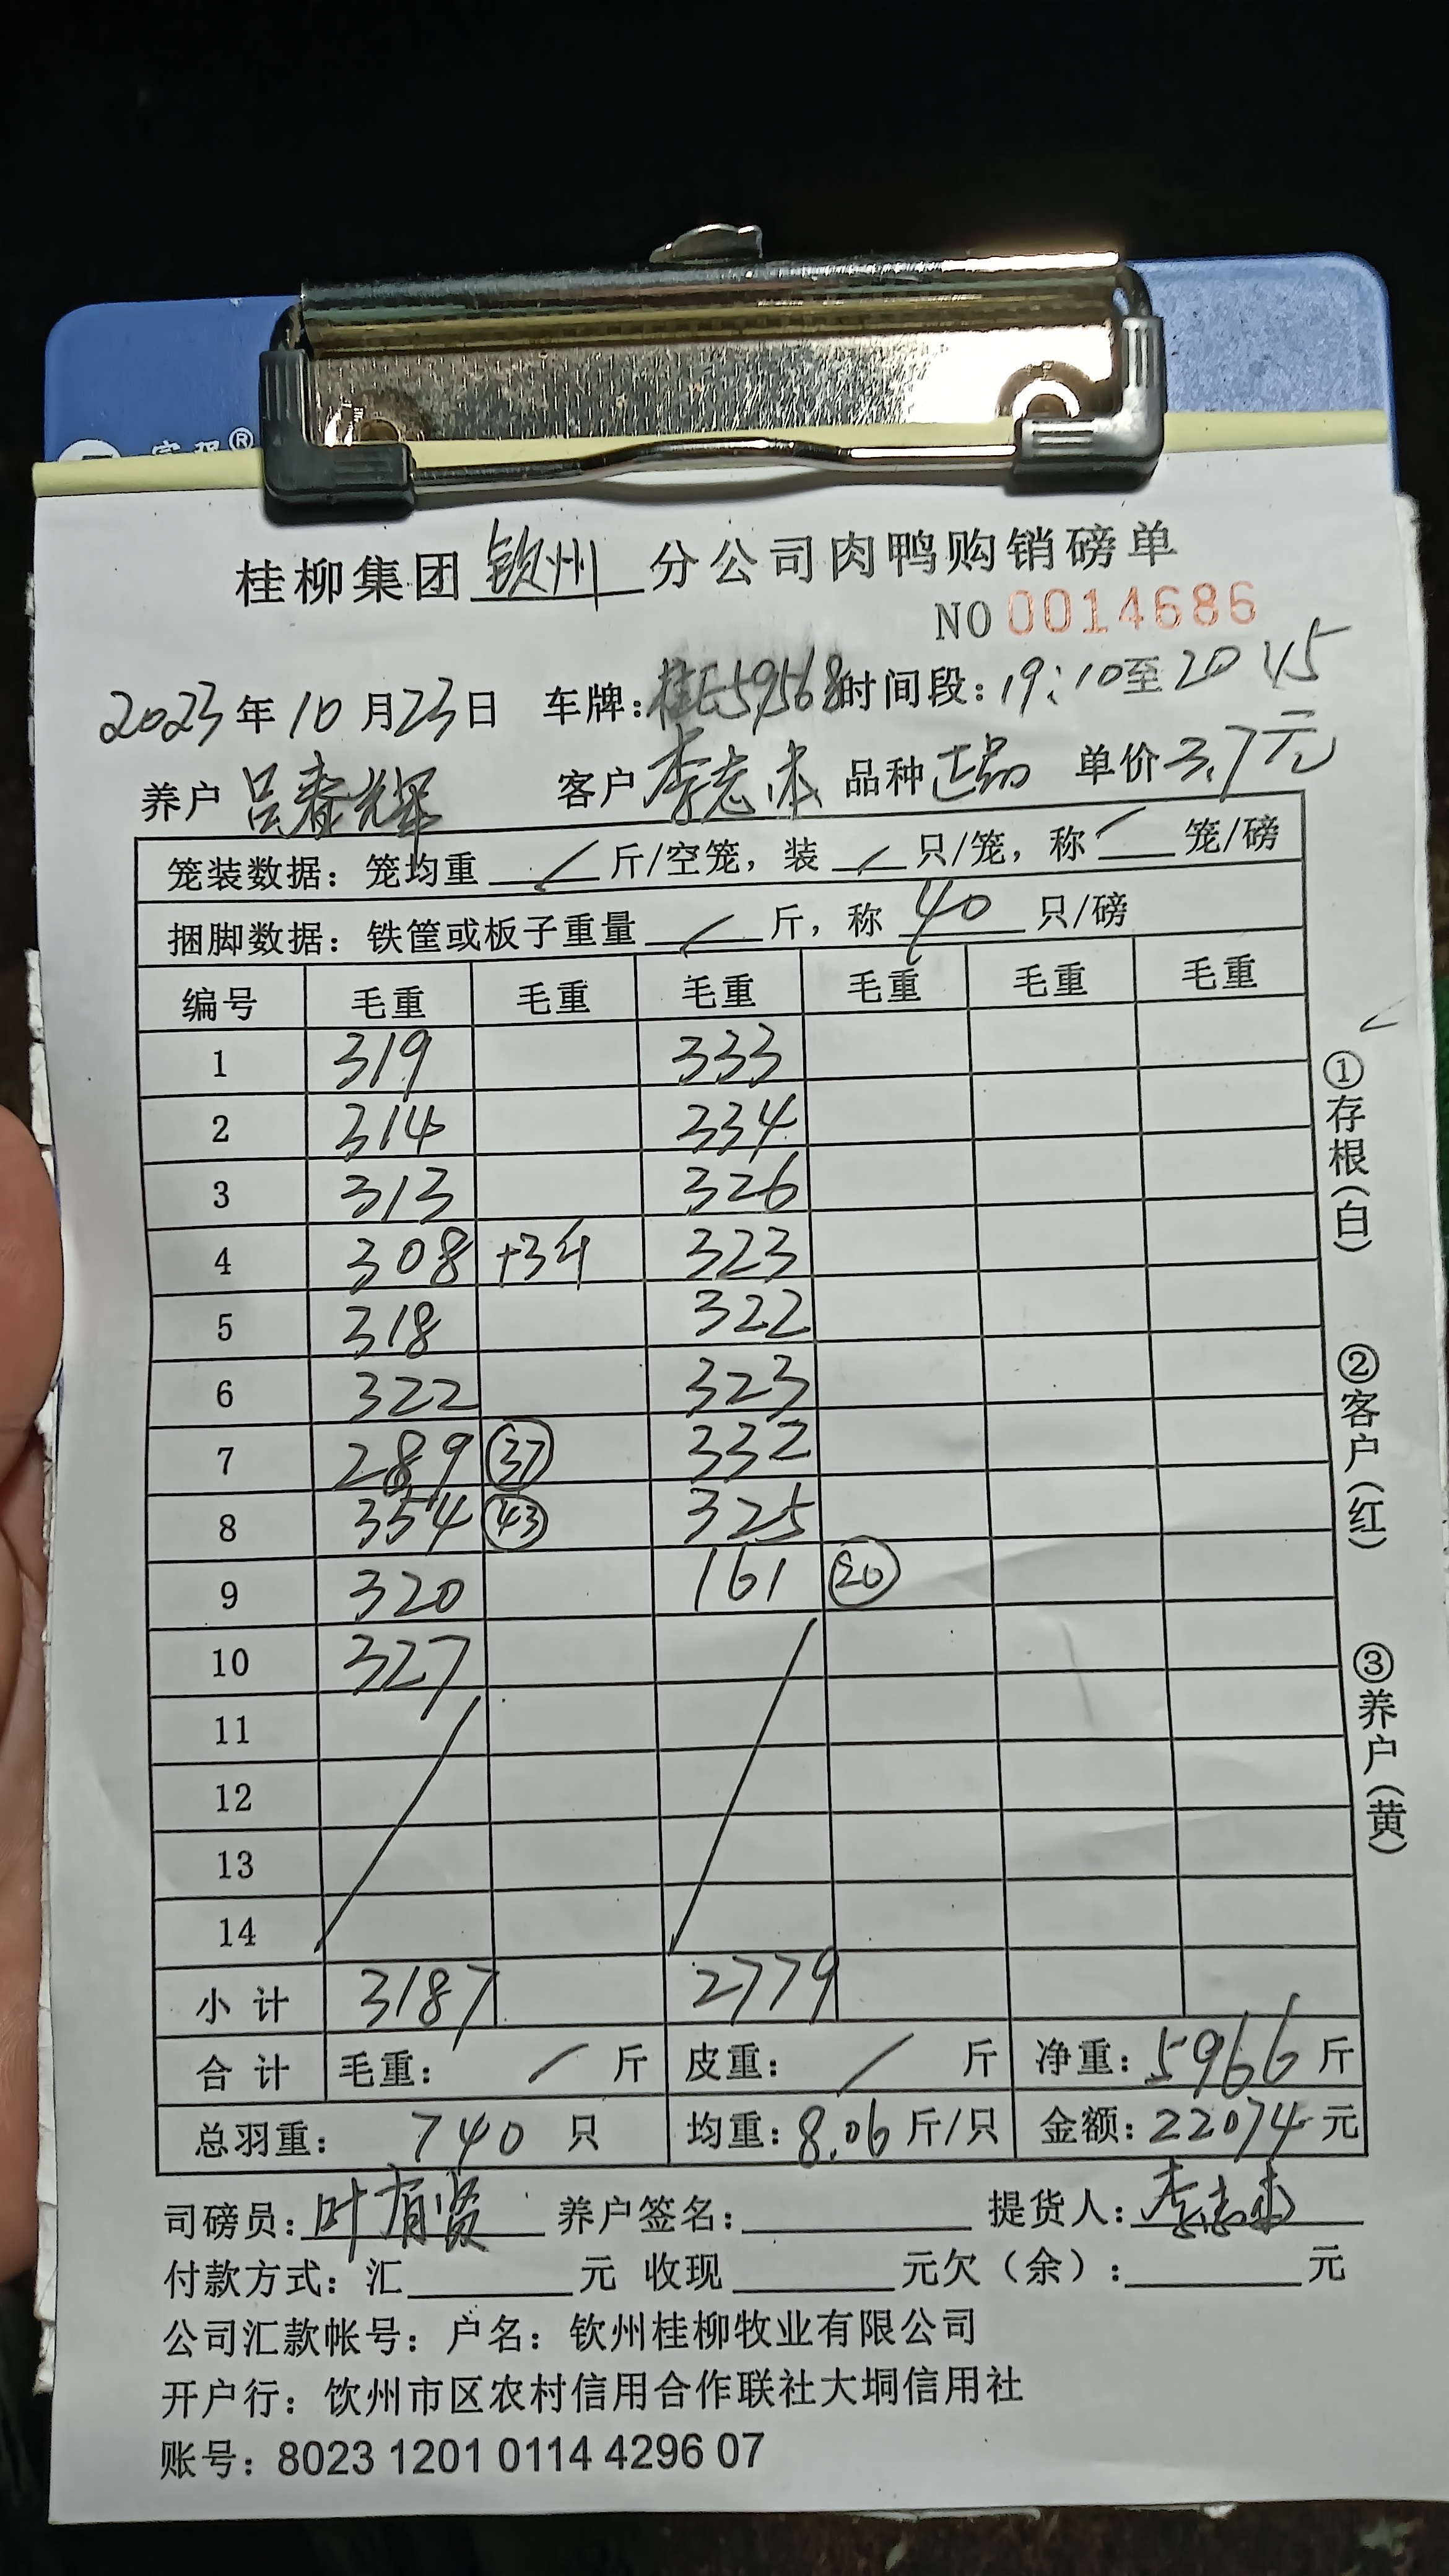 桂柳集团钦州分公司肉鸭购销磅单
NO 0014686
2023年10月23日 车牌:桂E59568 时间段:19:10至20 45
养户 吕春辉 客户 李志本 品种 正品 单价 3.7元
笼装数据:笼均重 / 斤/空笼,装 / 只/笼,称 / 笼/磅
捆脚数据:铁筐或板子重量 / 斤,称 40 只/磅
编号 毛重 毛重 毛重 毛重 毛重 毛重
1 319 333
2 314 334
3 313 326
4 308 +3斤 323
5 318 322
6 322 323
7 289 37 332
8 354 43 325
9 320 161 20
10 327
11
12
13
14
小计 3187 2779
合计 毛重: / 斤 皮重: / 斤 净重:5966斤
总羽重: 740 只 均重:8.06斤/只 金额:22074元
司磅员:叶有贤 养户签名: 提货人:李志本
付款方式:汇 元 收现 元欠(余): 元
公司汇款帐号:户名:钦州桂柳牧业有限公司
开户行:饮州市区农村信用合作联社大垌信用社
账号:8023 1201 0114 4296 07
①存根(白)
②客户(红)
③养户(黄)